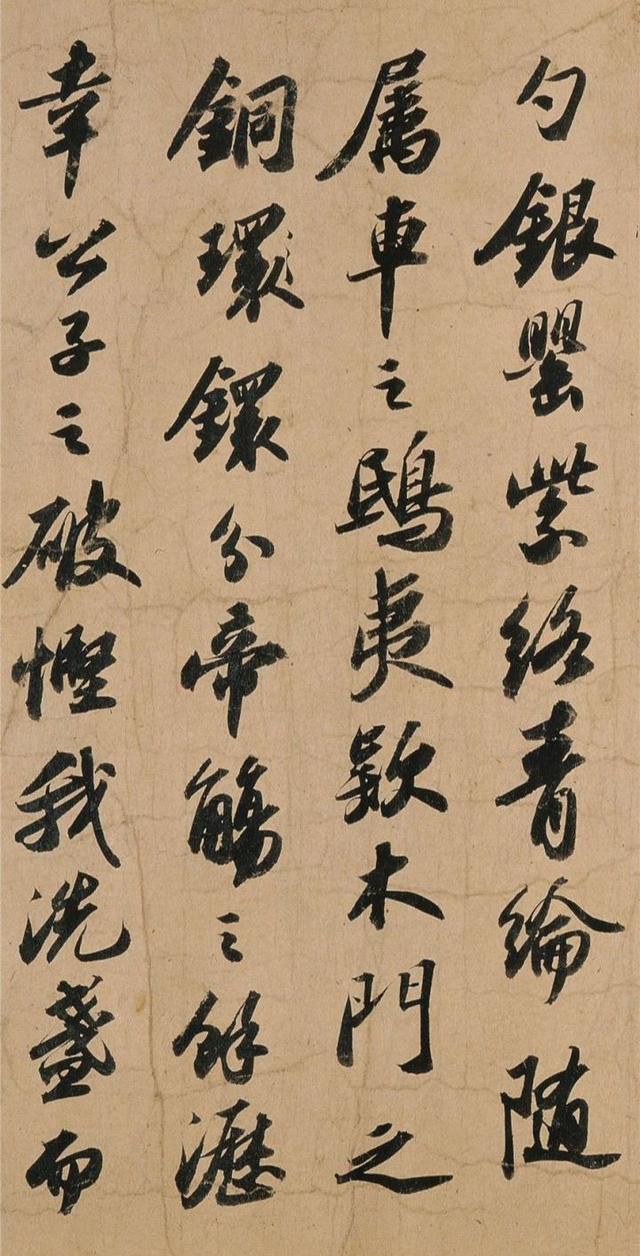 勺銀罌紫絡青綸隨
属車之鴟夷欵木門之
銅環鐶分帝觴之餘瀝
幸公子之破慳我洗盞而